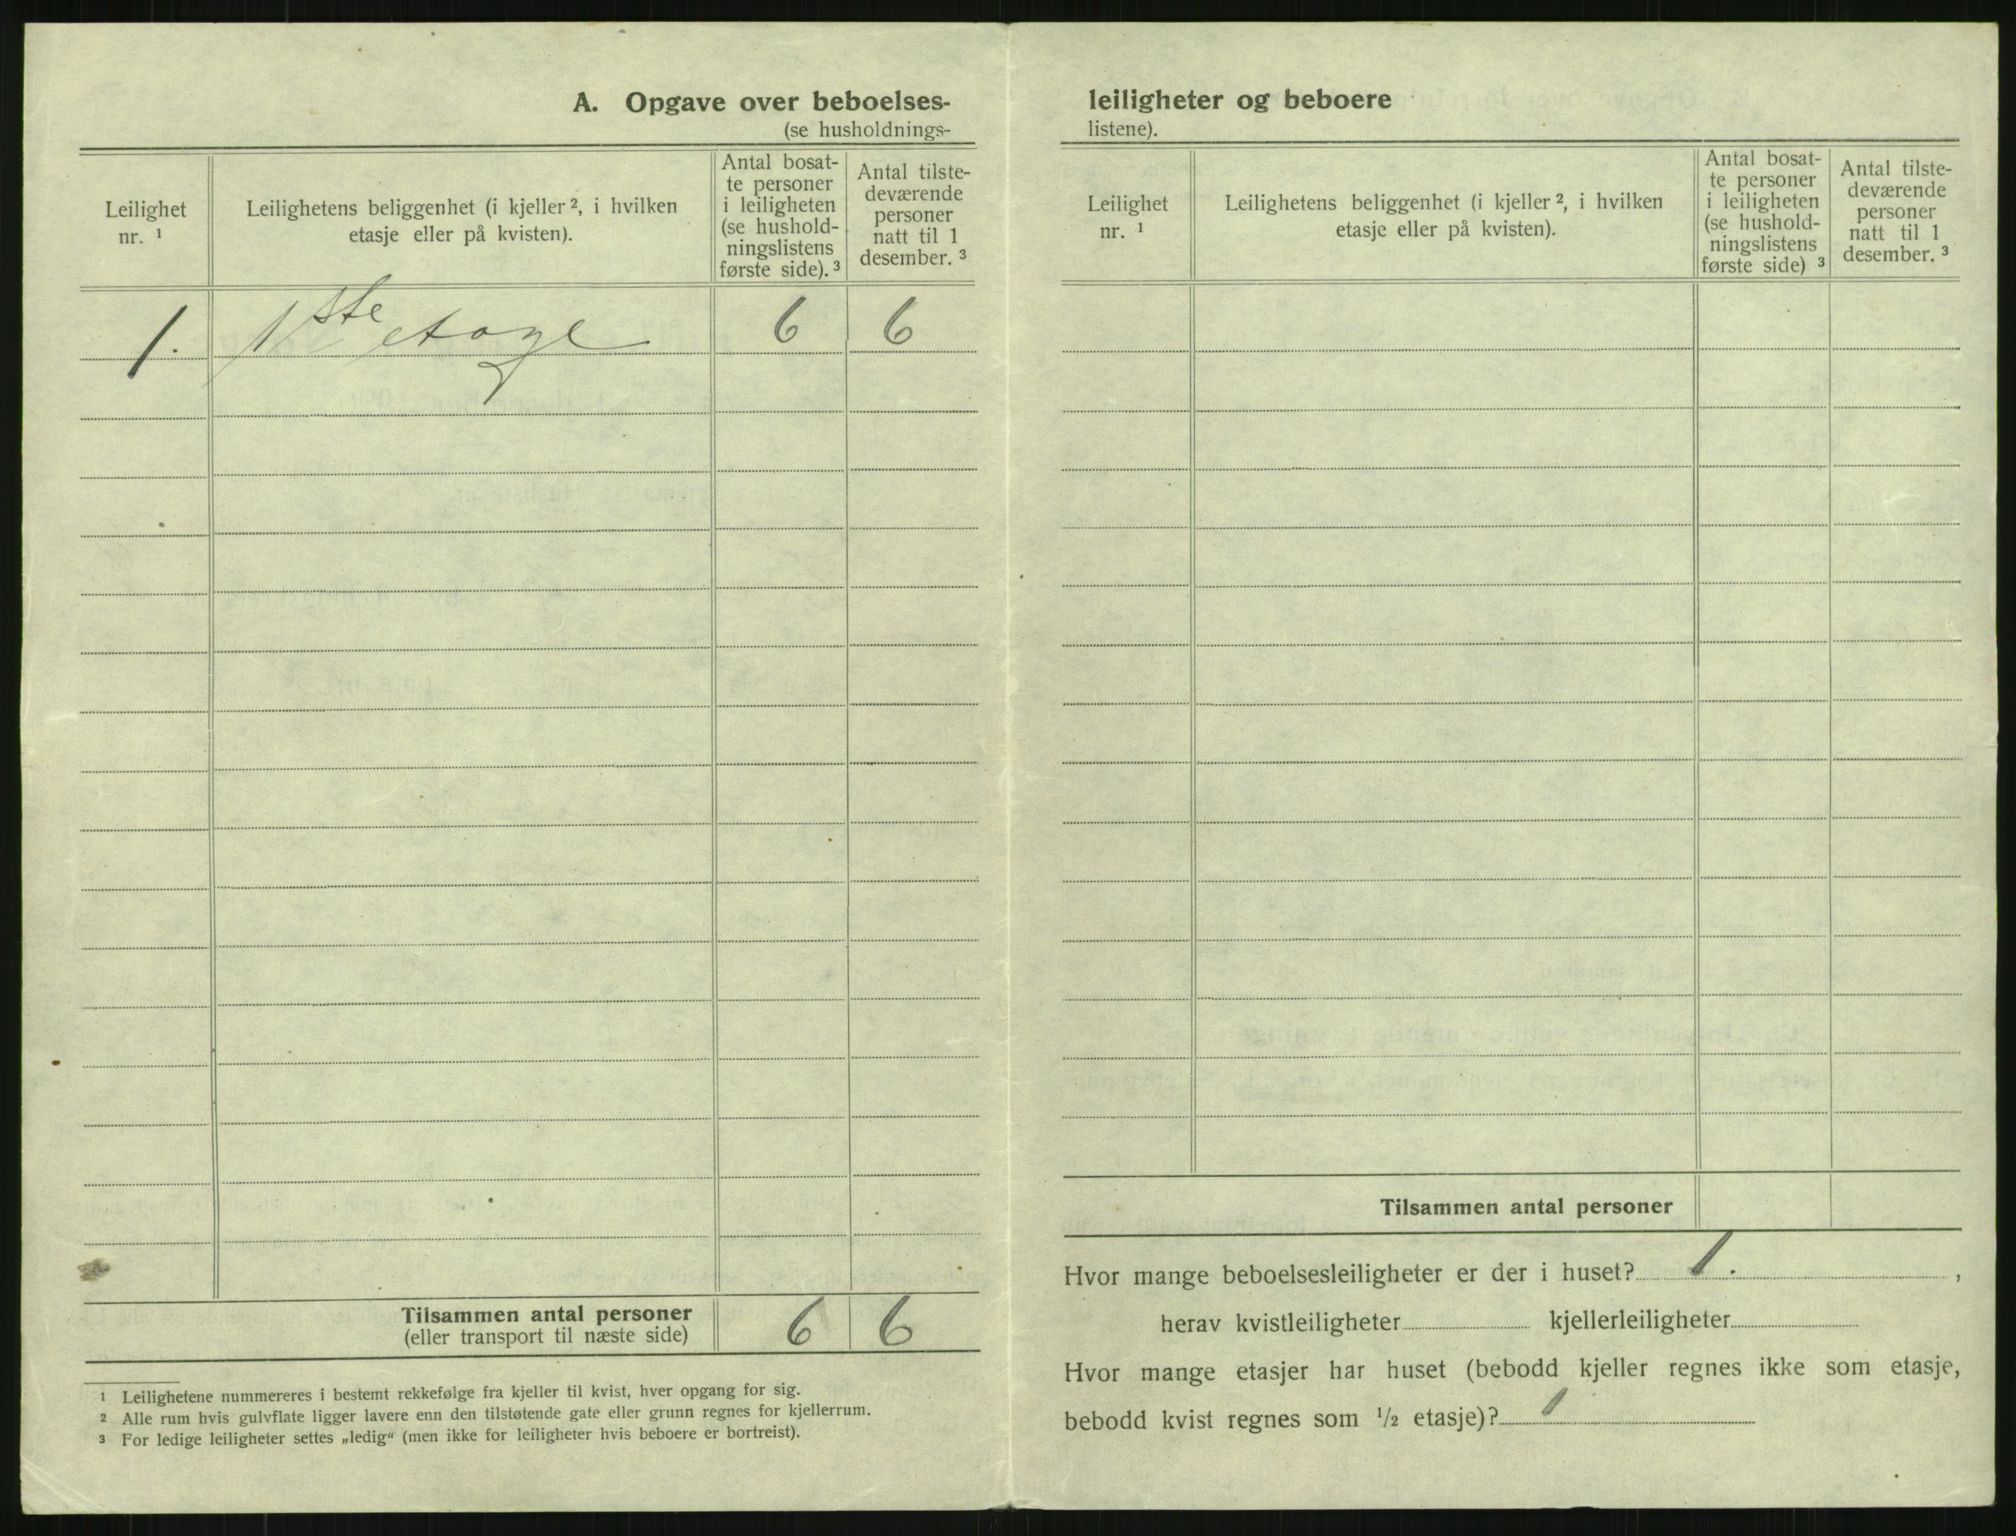 A. Opgave over beboelses-
(se husholdnings-
Leilighet
nr. ¹
Leilighetens beliggenhet (i kjeller ², i hvilken
etasje eller på kvisten).
Antal bosat-
te personer
i leiligheten
(se hushold-
ningslistens
første side). ³
Antal tilste-
deværende
personer
natt til 1
desember. ³
1. 1ste etage 6 6
Tilsammen antal personer 6 6
(eller transport til næste side)
¹ Leilighetene nummereres i bestemt rekkefølge fra kjeller til kvist, hver opgang for sig.
² Alle rum hvis gulvflate ligger lavere enn den tilstøtende gate eller grunn regnes for kjellerrum.
³ For ledige leiligheter settes „ledig“ (men ikke for leiligheter hvis beboere er bortreist).
leiligheter og beboere
listene).
Leilighet
nr. ¹
Leilighetens beliggenhet (i kjeller ², i hvilken
etasje eller på kvisten).
Antal bosat-
te personer
i leiligheten
(se hushold-
ningslistens
første side) ³
Antal tilste-
deværende
personer
natt til 1
desember. ³
Tilsammen antal personer
Hvor mange beboelsesleiligheter er der i huset? 1. ,
herav kvistleiligheter kjellerleiligheter
Hvor mange etasjer har huset (bebodd kjeller regnes ikke som etasje,
bebodd kvist regnes som ½ etasje)? 1